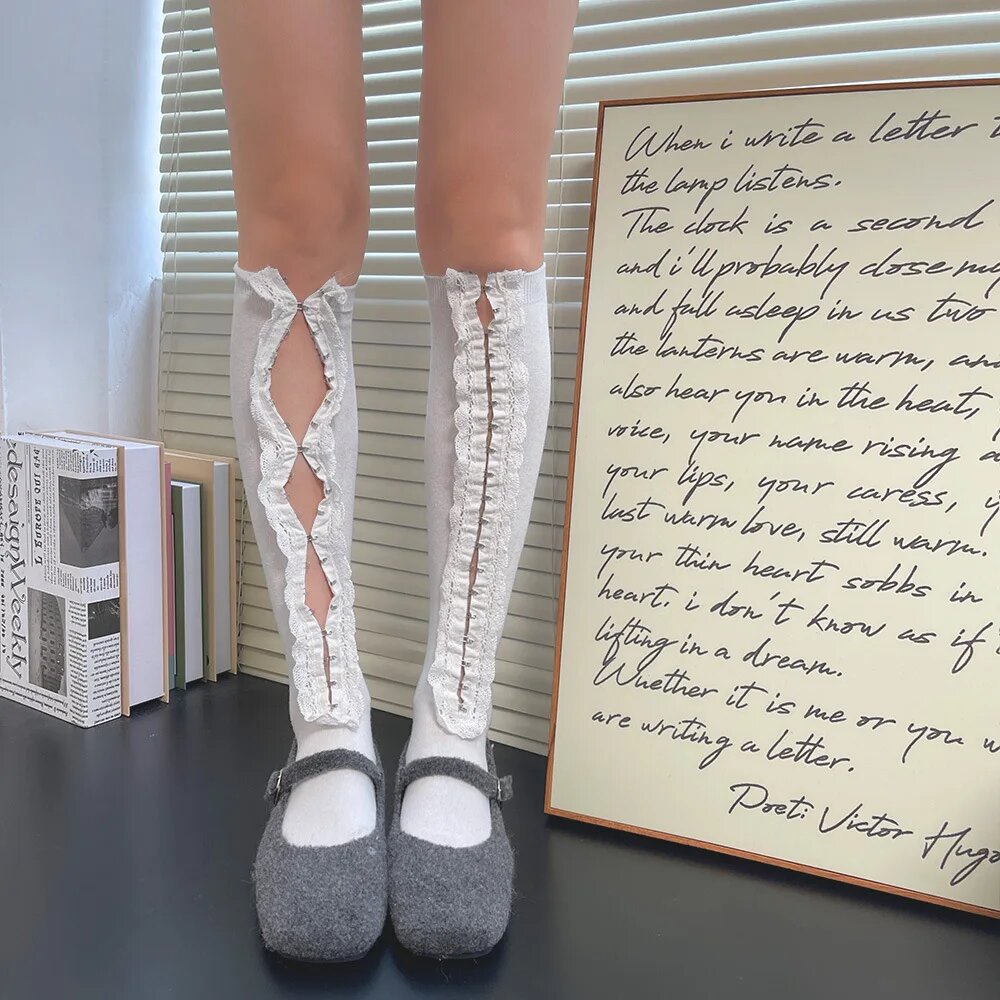 When i write a letter
the lamp listens.
The clock is a second
and i'll probably close my
and full asleep in us two
the lanterns are warm, and
also hear you in the heat,
voice, your name rising
your lips, your caress,
last warm love, still warm.
your thin heart sobbs in
heart. i don't know as if
lifting in a dream.
Whether it is me or you
are writing a letter.
Poet: Victor Hugo
designWeekly